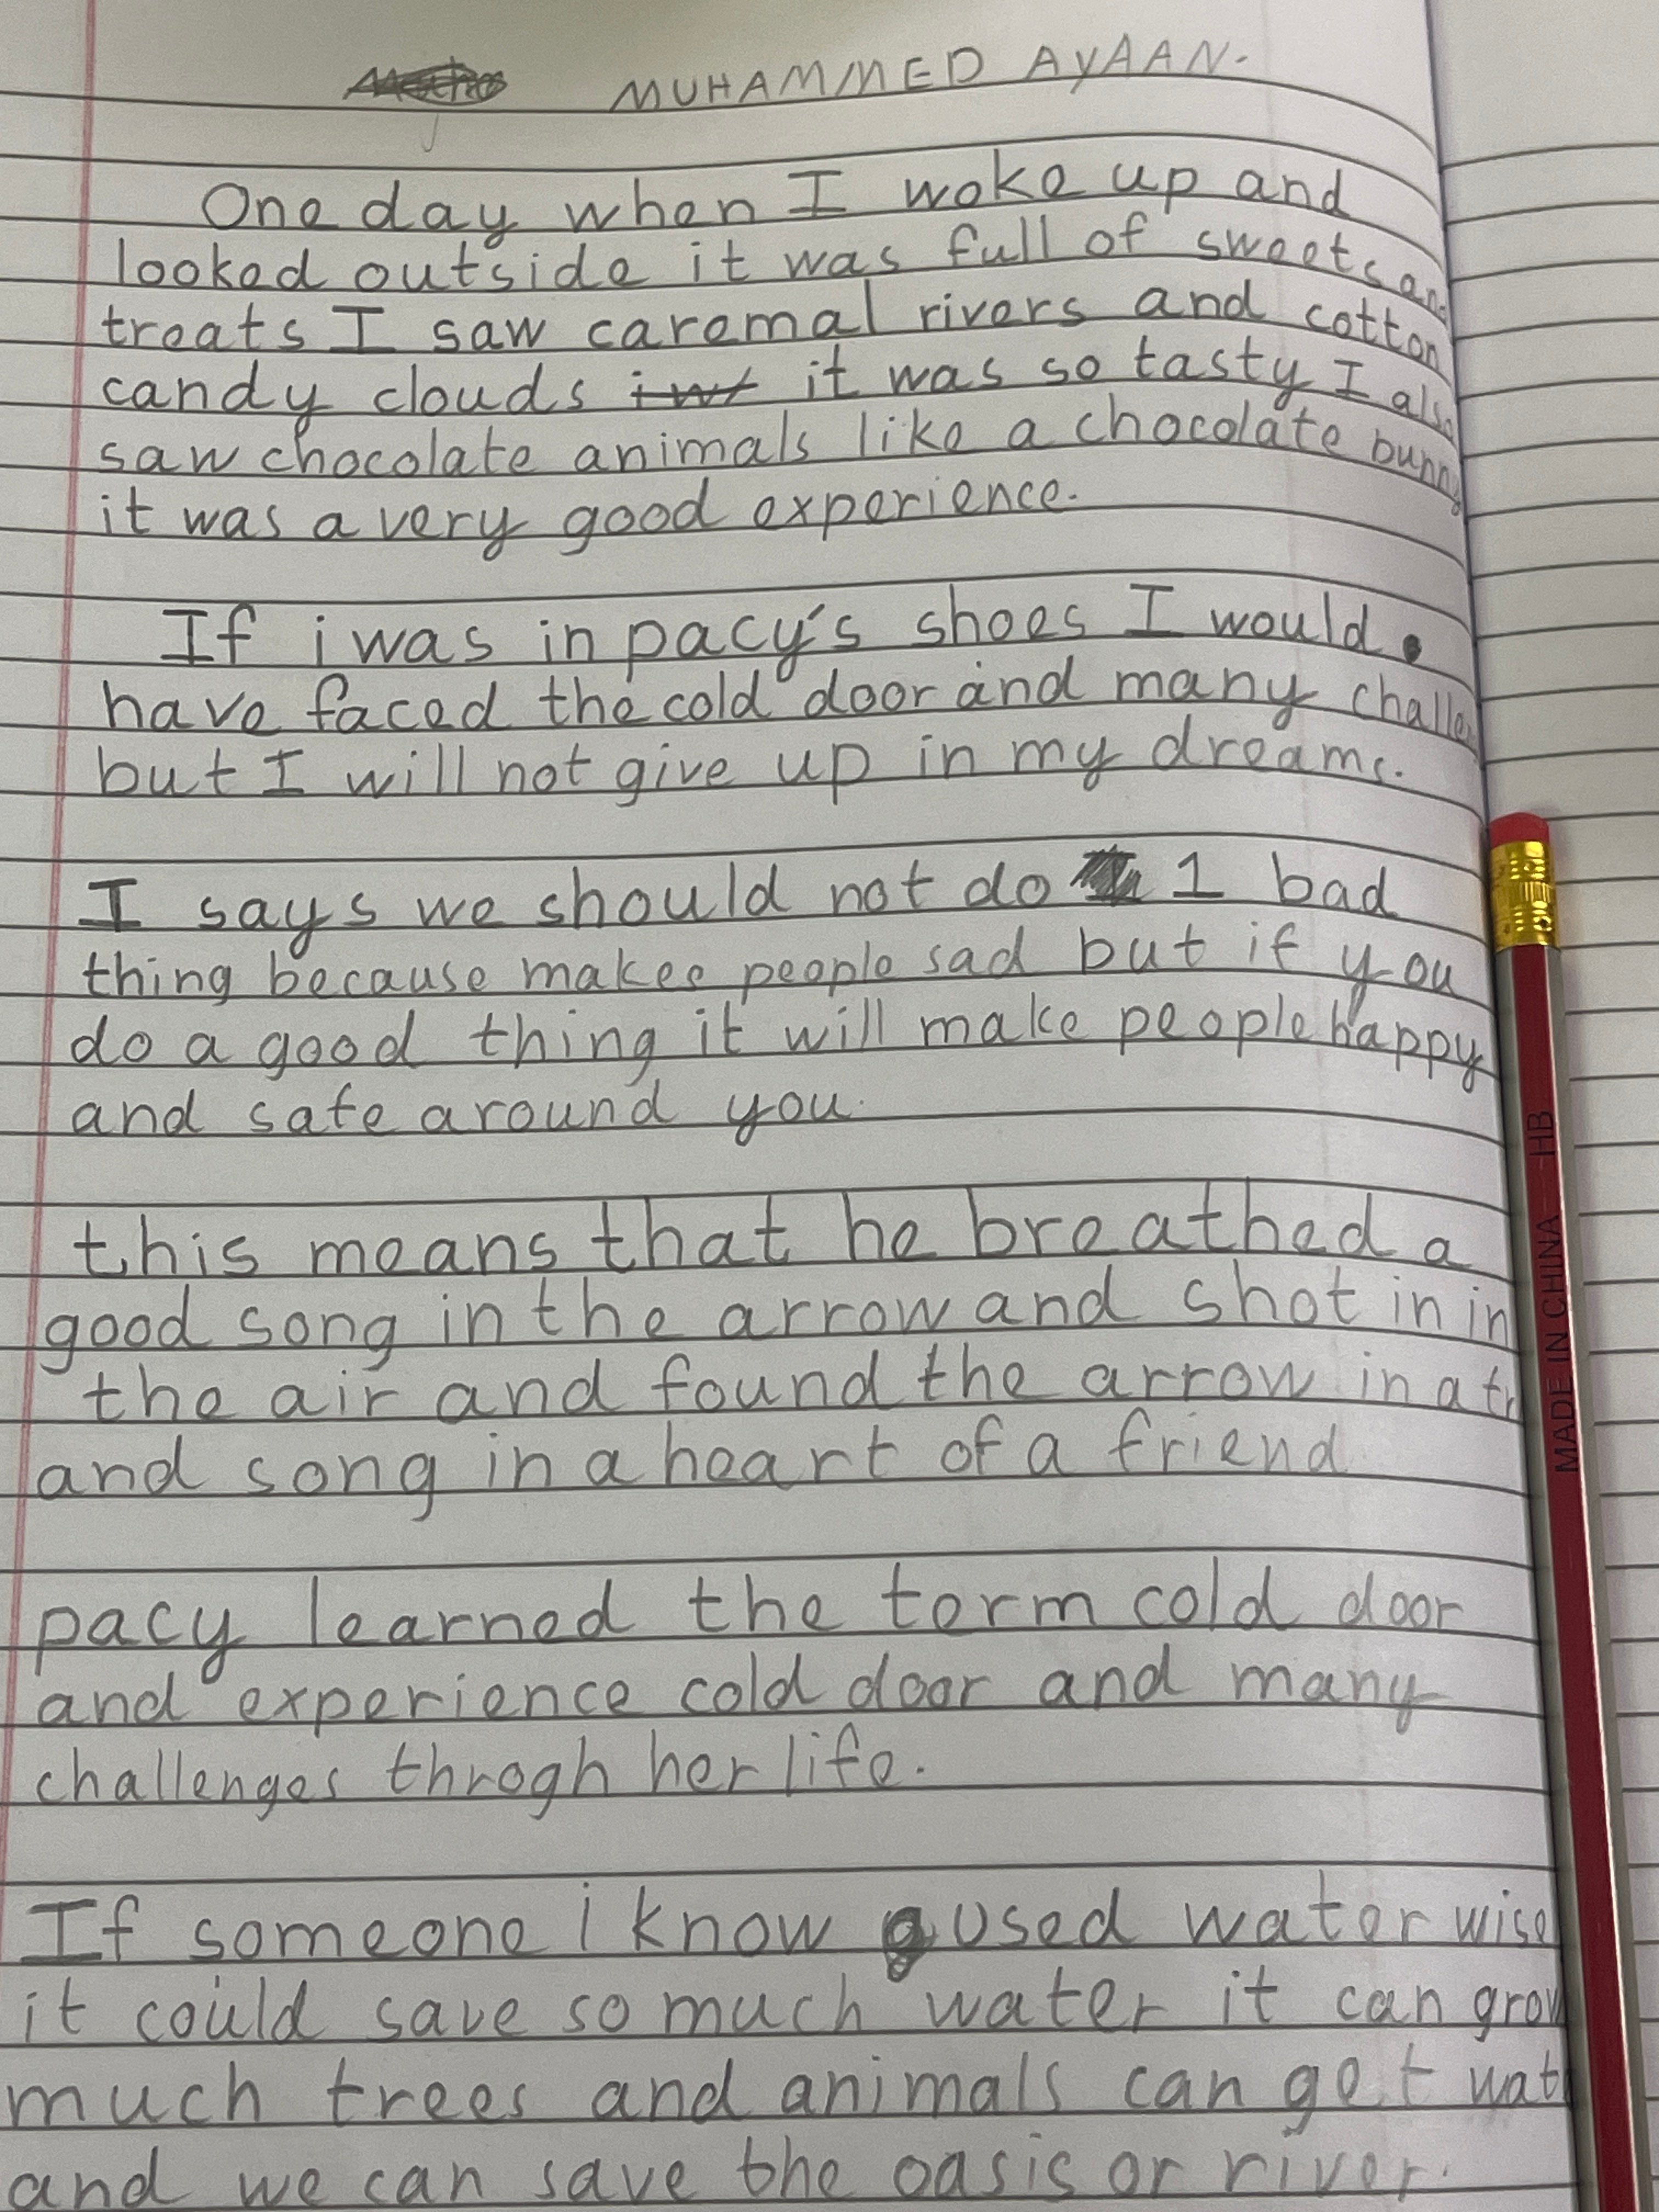 MUHAMMED AYAAN.
One day when I woke up and
looked outside it was full of sweets an
treats I saw caremal rivers and cotton
candy clouds iwt it was so tasty I also
saw chocolate animals like a chocolate bunny
it was a very good experience.
If i was in pacy's shoes I would
have faced the cold door and many challen
but I will not give up in my dreams.
I says we should not do 1 bad
thing because makes people sad but if you
do a good thing it will make people happy
and safe around you.
this means that he breathed a
good song in the arrow and shot in in
the air and found the arrow in a tr
and song in a heart of a friend
pacy learned the term cold door
and experience cold door and many
challenges throgh her life.
If someone i know used water wise
it could save so much water it can grow
much trees and animals can get wat
and we can save the oasis or river.
MADE IN CHINA HB